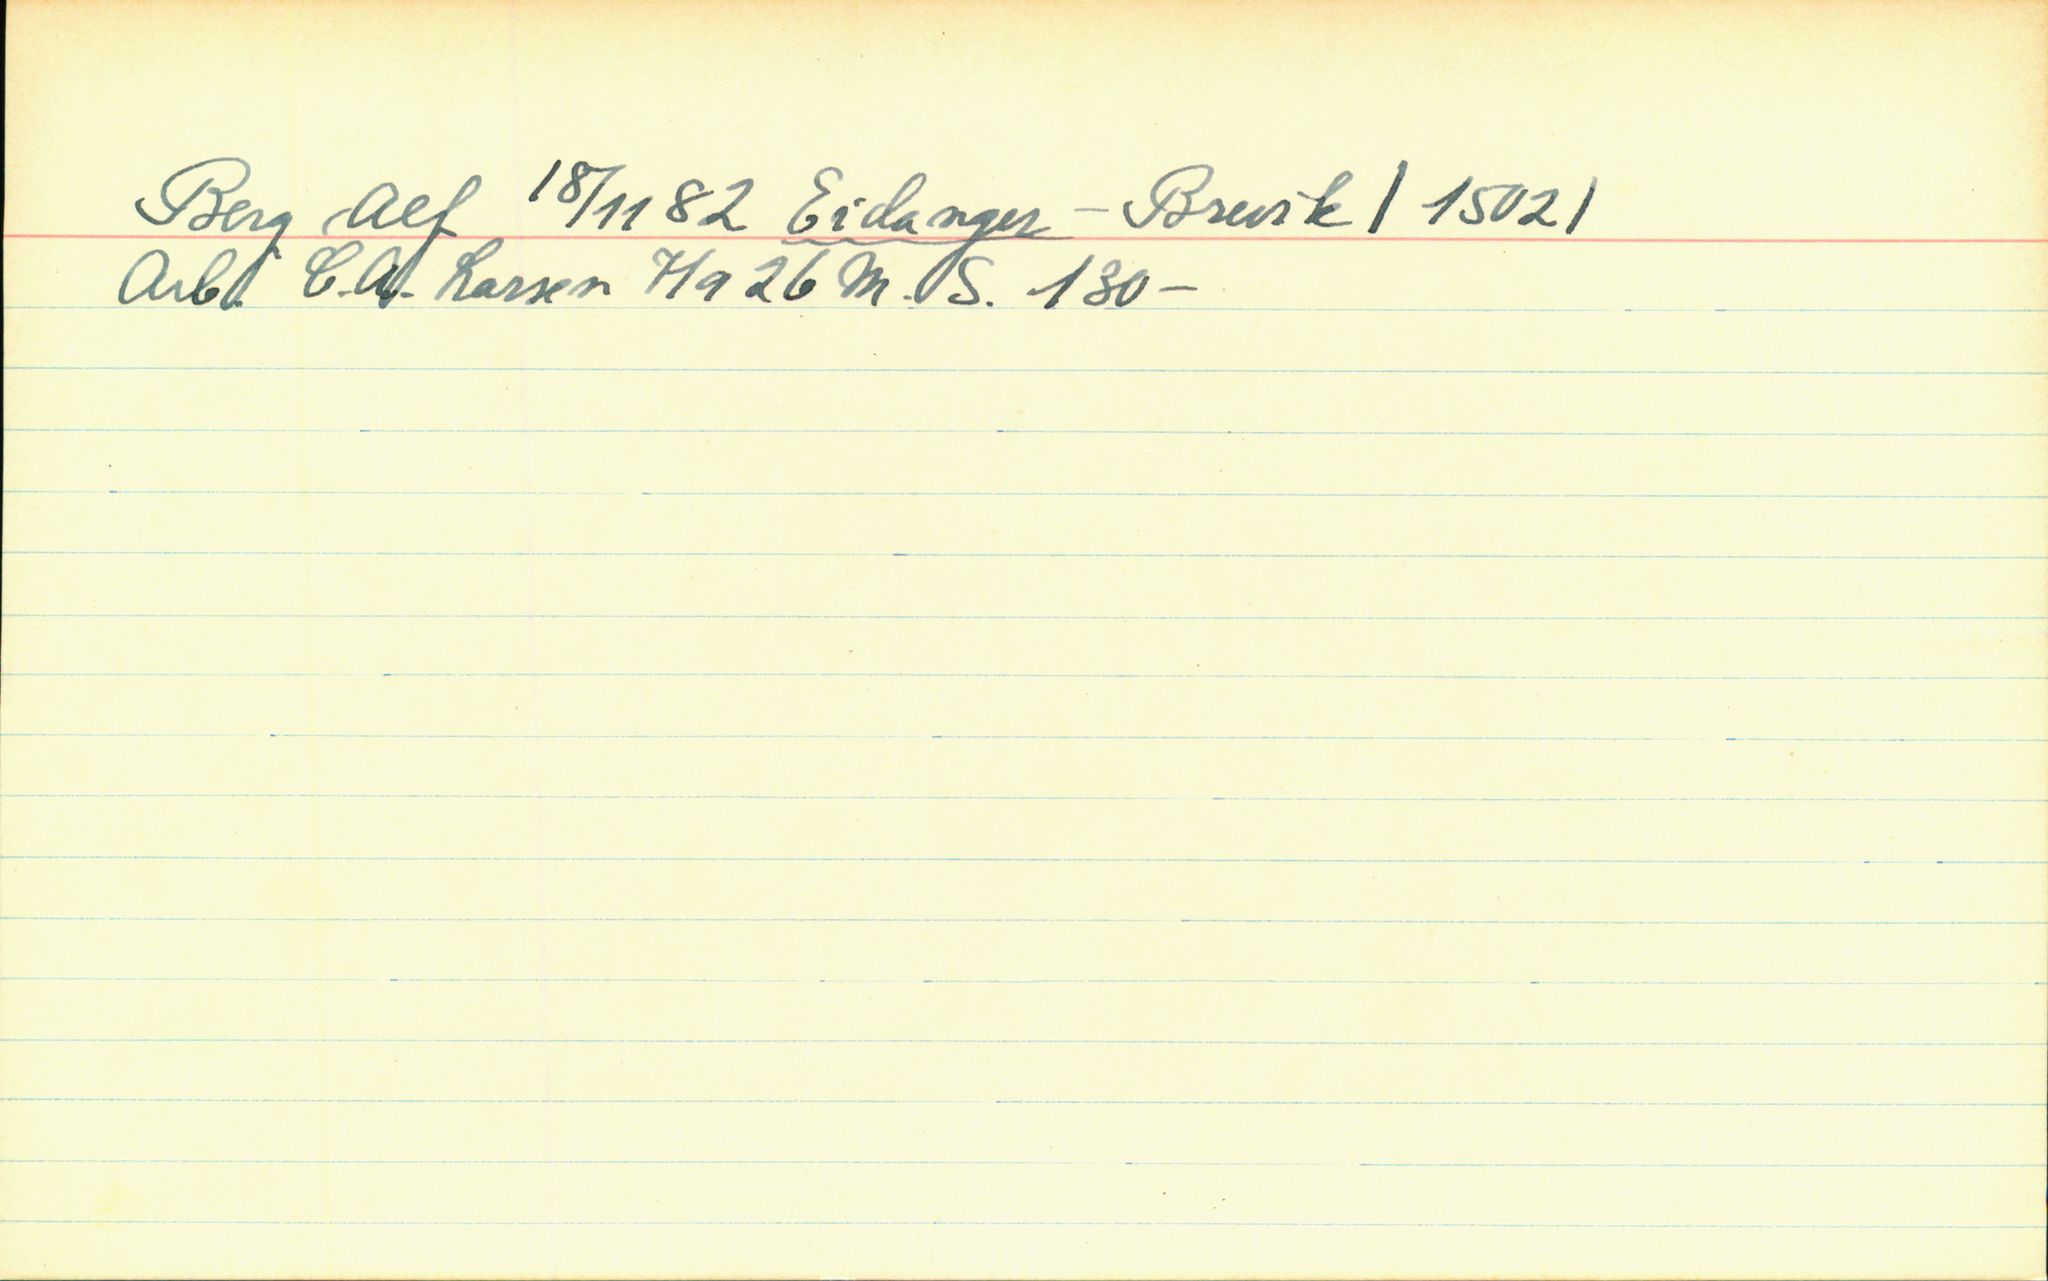 Berg Alf 18/11 82 Eidanger - Brevik | 15021
Arb. C.A. Larsen 7/9 26 M. S. 130-